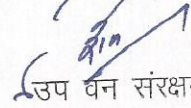 उप वन संरक्ष